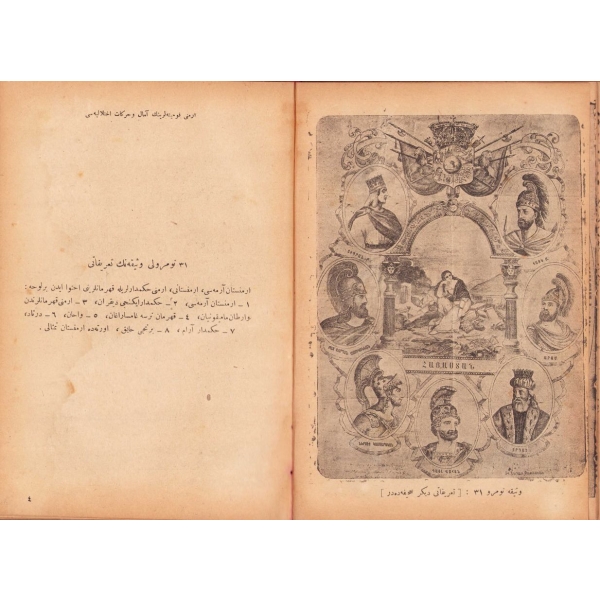 ارمنی قومیته‌لرینك آمال و حركات اختلالیه‌سی
٣١ نومرولی وثیقه‌نك تعریفاتی
ارمنستان آرمه‌سی، ارمنستانی، ارمنی حكمدارلریله قهرمانلرینی احتوا ایدن بر لوحه :
١ ـ ارمنستان آرمه‌سی، ٢ ـ حكمدار ایكنجی دیغران، ٣ ـ ارمنی قهرمانلرندن
وارطان مامیغونیان، ٤ ـ قهرمان نرسه قامساراغان، ٥ ـ واهان، ٦ ـ درتاد،
٧ ـ حكمدار آرام، ٨ ـ برنجی هایق، اورته‌ده ارمنستان تمثالی .
٤
ՀԱՅԱՍՏԱՆ
وثیقه نومرو ٣١ : [ تعریفاتی دیكر صحیفه‌ده‌در ]